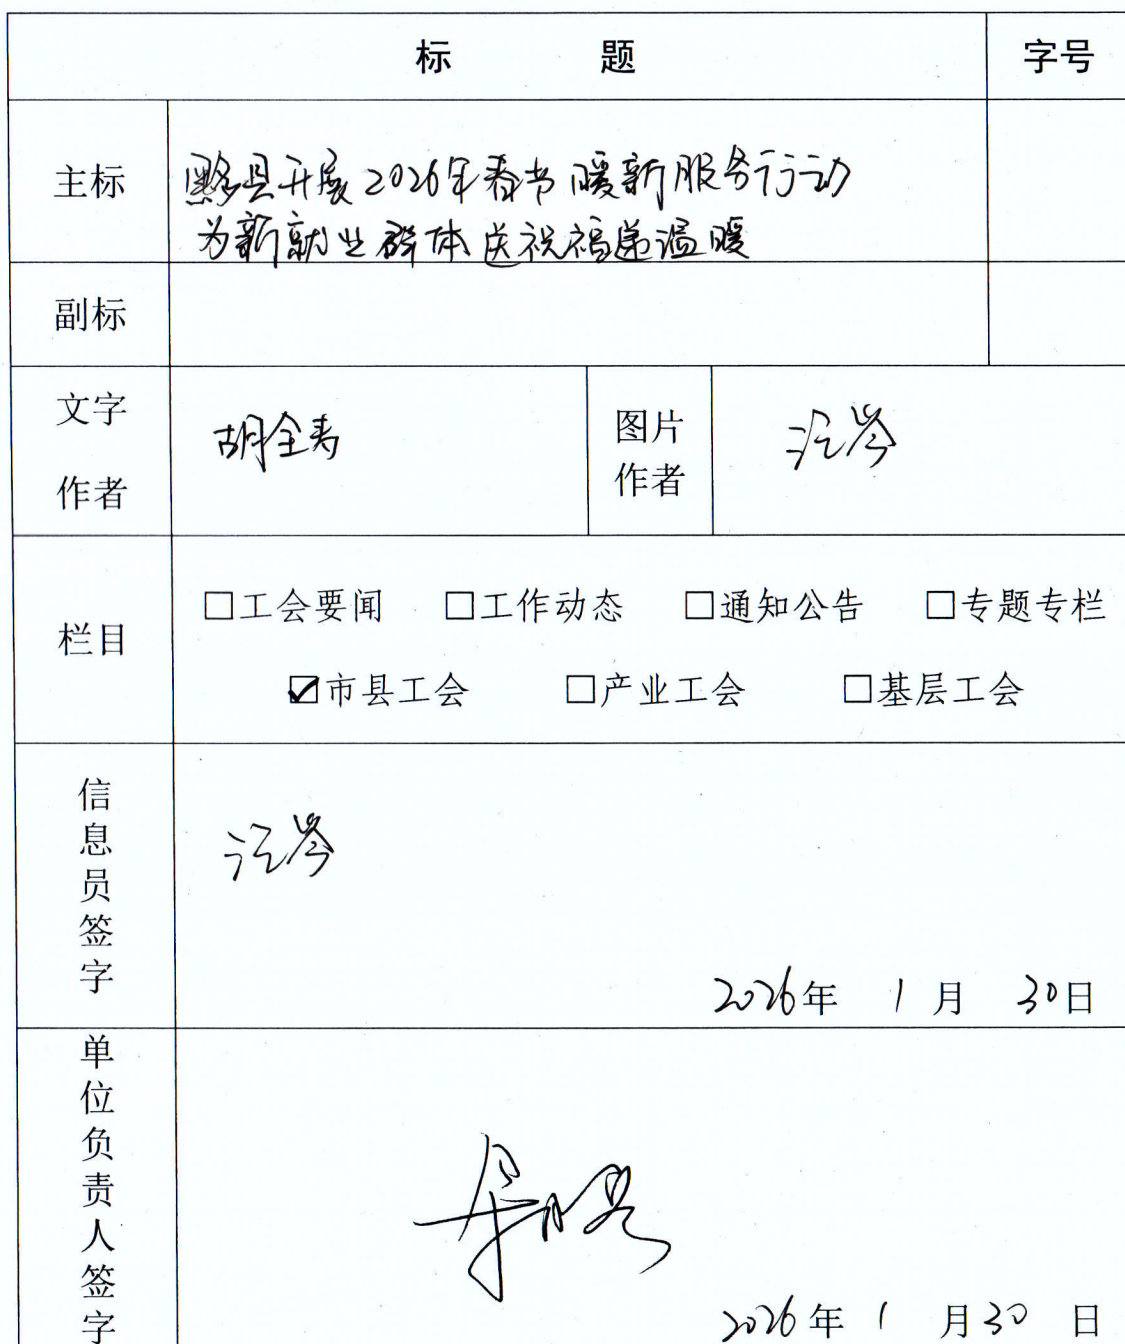 标 题 字号
主标 黟县开展2026年春节暖新服务行动
为新就业群体送祝福递温暖
副标
文字 作者 胡全寿 图片 作者 汪岑
栏目 □工会要闻 □工作动态 □通知公告 □专题专栏
☑市县工会 □产业工会 □基层工会
信息员签字 汪岑
2026年 1月 30日
单位负责人签字
2026年 1月30日